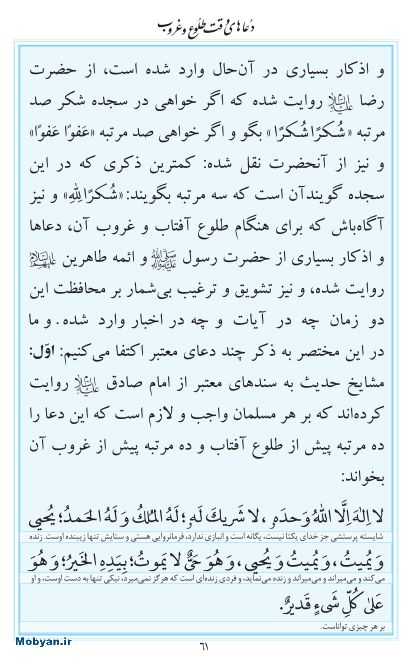 دعاهای وقت طلوع و غروب
و اذکار بسیاری در آن‌حال وارد شده است، از حضرت
رضا علیه‌السلام روایت شده که اگر خواهی در سجده شکر صد
مرتبه «شُکرًا شُکرًا» بگو و اگر خواهی صد مرتبه «عَفوًا عَفوًا»
و نیز از آنحضرت نقل شده: کمترین ذکری که در این
سجده گویندآن است که سه مرتبه بگویند: «شُکرًالِلّٰهِ» و نیز
آگاه‌باش که برای هنگام طلوع آفتاب و غروب آن، دعاها
و اذکار بسیاری از حضرت رسول ﷺ و ائمه طاهرین علیهم‌السلام
روایت شده، و نیز تشویق و ترغیب بی‌شمار بر محافظت این
دو زمان چه در آیات و چه در اخبار وارد شده. و ما
در این مختصر به ذکر چند دعای معتبر اکتفا می‌کنیم: اوّل:
مشایخ حدیث به سندهای معتبر از امام صادق علیه‌السلام روایت
کرده‌اند که بر هر مسلمان واجب و لازم است که این دعا را
ده مرتبه پیش از طلوع آفتاب و ده مرتبه پیش از غروب آن
بخواند:
لا اِلٰهَ اِلَّا اللّٰهُ وَحدَهٗ، لا شَریكَ لَهٗ؛ لَهُ المُلكُ وَ لَهُ الحَمدُ؛ یُحیي
شایسته پرستشی جز خدای یکتا نیست، یگانه است و انبازی ندارد، فرمانروایی هستی و ستایش تنها زیبنده اوست. زنده
وَ یُمیتُ، وَ یُمیتُ وَ یُحیي، وَ هُوَ حَيٌّ لا یَموتُ؛ بِیَدِهِ الخَیرُ؛ وَ هُوَ
می‌کند و می‌میراند و می‌میراند و زنده می‌نماید، و فردی زنده‌ای است که هر گز نمی‌میرد، نیکی تنها به دست اوست، و او
عَلیٰ کُلِّ شَيءٍ قَدیرٌ.
بر هر چیزی تواناست.
٦١
Mobyan.ir